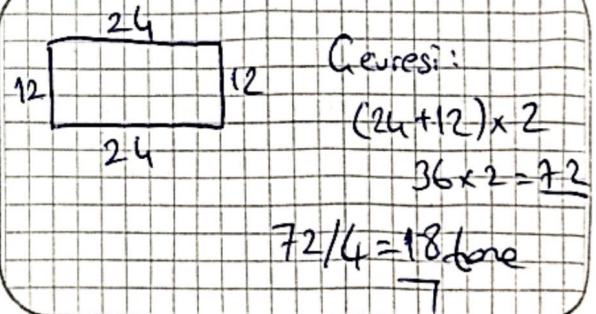 24
12
12
24
Çevresi:
(24+12)x2
36x2=72
72/4=18 tane